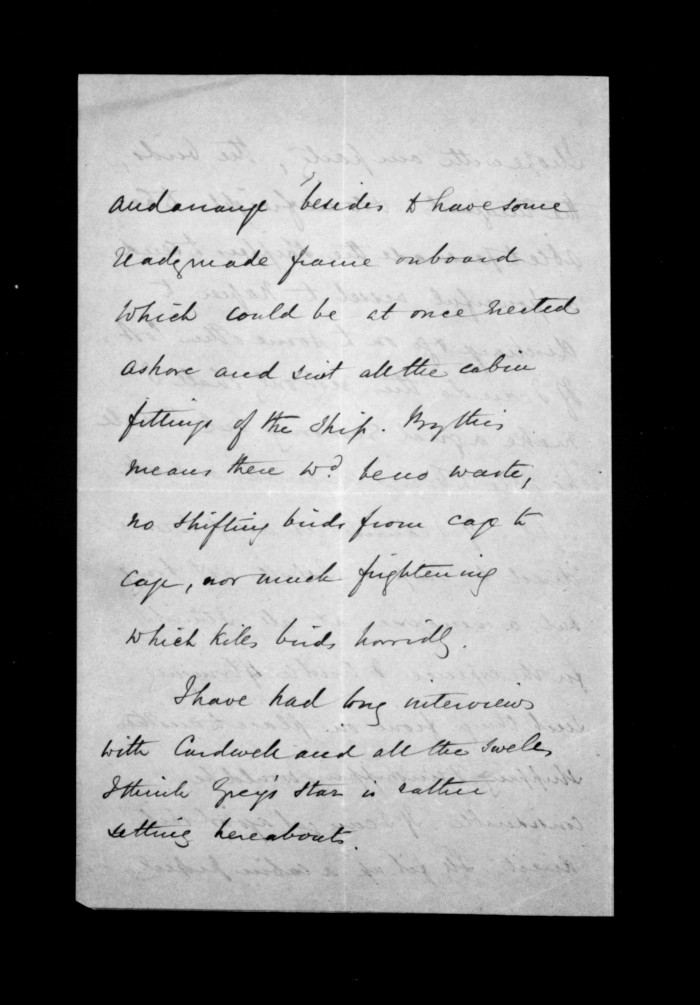 and arrange, besides to have some
readymade frame onboard
which could be at once erected
ashore and suit all the cabin
fittings of the ship. By this
means there wd. be no waste,
no shifting birds from cage to
cage, nor much frightening
which kills birds horridly.
I have had long interviews
with Cardwell and all the swells
I think Grey's star is rather
setting hereabouts.